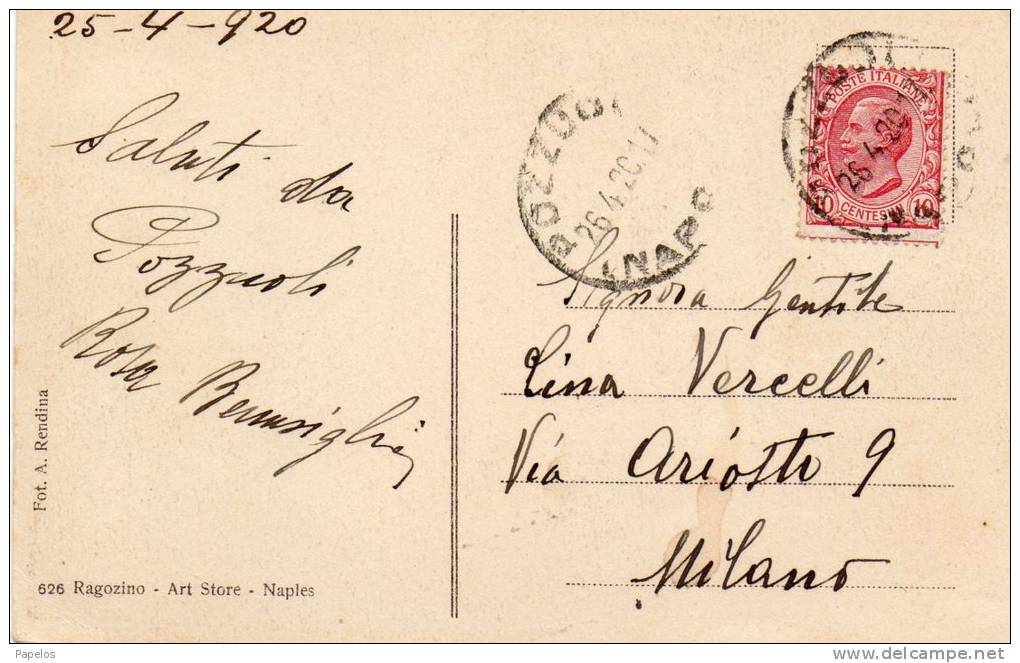 25-4-920
Saluti da
Pozzuoli
Rosa
Fot. A. Rendina
626 Ragozino - Art Store - Naples
POZZUO
26.4.20 17
(NAPO
POSTE ITALIANE
26.4.20
10 CENTESIMI 10
Signora Gentile
Lina Vercelli
Via Ariosto 9
Milano
Papelos
www.delcampe.net